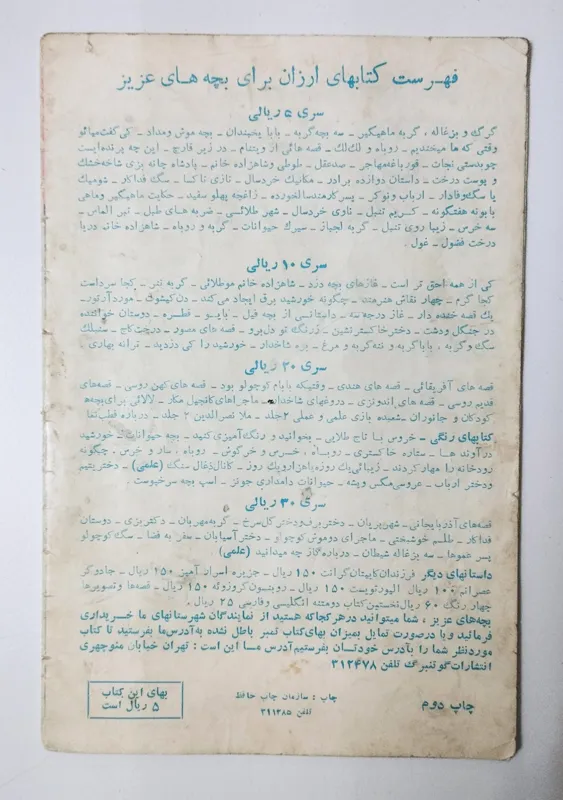 فهرست کتابهای ارزان برای بچه های عزیز
سری ۵ ریالی
گرگ و بزغاله ، گربه ماهیگیر ـ سه بچه گربه ـ بابا یخبندان ـ بچه موش و مداد ـ کی گفت میائو
وقتی که ما میخندیم ـ روباه و لک لک ـ قصه هائی از ویتنام ـ در زیر قارچ ـ این چه پرنده ایست
چوبدستی نجات ـ قورباغه مهاجر ـ صدعقل ـ طوطی و شاهزاده خانم ـ پادشاه چانه بزی شاخه خشک
و پوست درخت ـ داستان دوازده برادر ـ مکانیک خردسال ـ نازی تا کسا ـ سگ فداکار ـ شومیک
یا سگ وفادار ـ ارباب و نوکر ـ پسر کارمند سالخورده ـ زاغچه پهلو سفید ـ حکایت ماهیگیر و ماهی
بابونه هفتگونه ـ کریم تنبل ـ ناوی خردسال ـ شهر طلائی ـ ضربه های طبل ـ تیر الماس ـ
سه خرس ـ زیبا روی تنبل ـ گربه لجباز ـ سیرک حیوانات ـ گربه و روباه ـ شاهزاده خانم دریا
درخت فضول ـ غول .
سری ۱۰ ریالی
کی از همه احمق تر است ـ غازهای بچه دزد ـ شاهزاده خانم موطلائی ـ گربه نفر ـ کجا سرداست
کجا گرم ـ چهار نقاش هنرمند ـ چگونه خورشید برق ایجاد می کند ـ دن کیشوت ـ موردآرتور ـ
یك قصه خنده دار ـ غاز درجه سه ـ داستانی از بچه فیل ـ بایمو ـ قطره ـ دوستان خزانده
در جنگل و دشت ـ دختر خاکستر نشین ـ زرنگ تو دل برو ـ قصه های مصور ـ درخت کاج ـ سنبلك
سگ و گربه ، بابا گربه و ننه گربه و مرغ ـ بره شاخدار ـ خورشید را کی دزدید ـ ترانه بهاری .
سری ۲۰ ریالی
قصه های آفریقائی ـ قصه های هندی ـ وقتیکه بابام کوچولو بود ـ قصه های کهن روسی ـ قصه های
قدیم روسی ـ قصه های اندونزی ـ دروغهای شاخدار ـ ماجراهای کانچهل مکار ـ لالائی برای بچه ها
کودکان و جانوران ـ شعبده بازی علمی و عملی ۲ جلد ـ ملا نصرالدین ۲ جلد ـ درباره قطب نما
کتابهای رنگی ـ خروس با تاج طلایی ـ بخوانید و رنگ آمیزی کنید ـ بچه حیوانات ـ خورشید
درآوند ها ـ ستاره خاکستری ـ روباه ، خرس و خرگوش ـ روباه ، سار و خرس ـ چگونه
رودخانه را مهار کردند ـ زیبائی یک روزه یا هزار و یک روز ـ کانال ذغال سنگ (علمی) ـ دختر یتیم
و دختر ارباب ـ عروسی مگس و پشه ـ حیوانات دامداری جونز ـ اسب بچه سرخپوست .
سری ۳۰ ریالی
قصه های آذربایجانی ـ شهر پریان ـ دختر برف و دختر گل سرخ ـ گربه مهربان ـ دکتر بزی ـ دوستان
فداکار ـ طلسم خوشبختی ـ ماجرای دوموش کوچولو ـ دختر آسیابان ـ سفر به فضا ـ سگ کوچولو
پسر عموها ـ سه بزغاله شیطان ـ درباره گاز چه میدانید (علمی)
داستانهای دیگر فرزندان کاپیتان گرانت ۱۵۰ ریال ـ جزیره اسرار آمیز ۱۵۰ ریال ـ جادوگر
عصرانم ۱۰۰ ریال الیور تویست ۱۵۰ ریال ـ روبنسون کروزوئه ۱۵۰ ریال ـ قصه ها و تصویرها
چهار رنگ ۶۰ ریال نخستین کتاب دومتنه انگلیسی و فارسی ۲۵ ریال .
بچه های عزیز ، شما میتوانید در هر کجا که هستید از نمایندگان شهرستانهای ما خریداری
فرمائید و یا در صورت تمایل بمیزان بهای کتاب تمبر باطل نشده به آدرس ما بفرستید تا کتاب
مورد نظر شما را بآدرس خودتان بفرستیم آدرس ما این است : تهران خیابان منوچهری
انتشارات گوتنبرگ تلفن ۳۱۲۴۷۸
چاپ دوم
چاپ : سازمان چاپ حافظ
تلفن ۳۹۱۳۸۵
بهای این کتاب
۵ ریال است